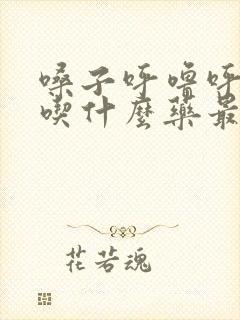 嗓子呼噜呼
喫什麼藥最
花若魂